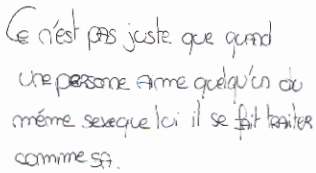 Ce n'est pas juste que quand
une persone aime quelqu'un du
même sexeque lui il se fait traiter
comme sa.